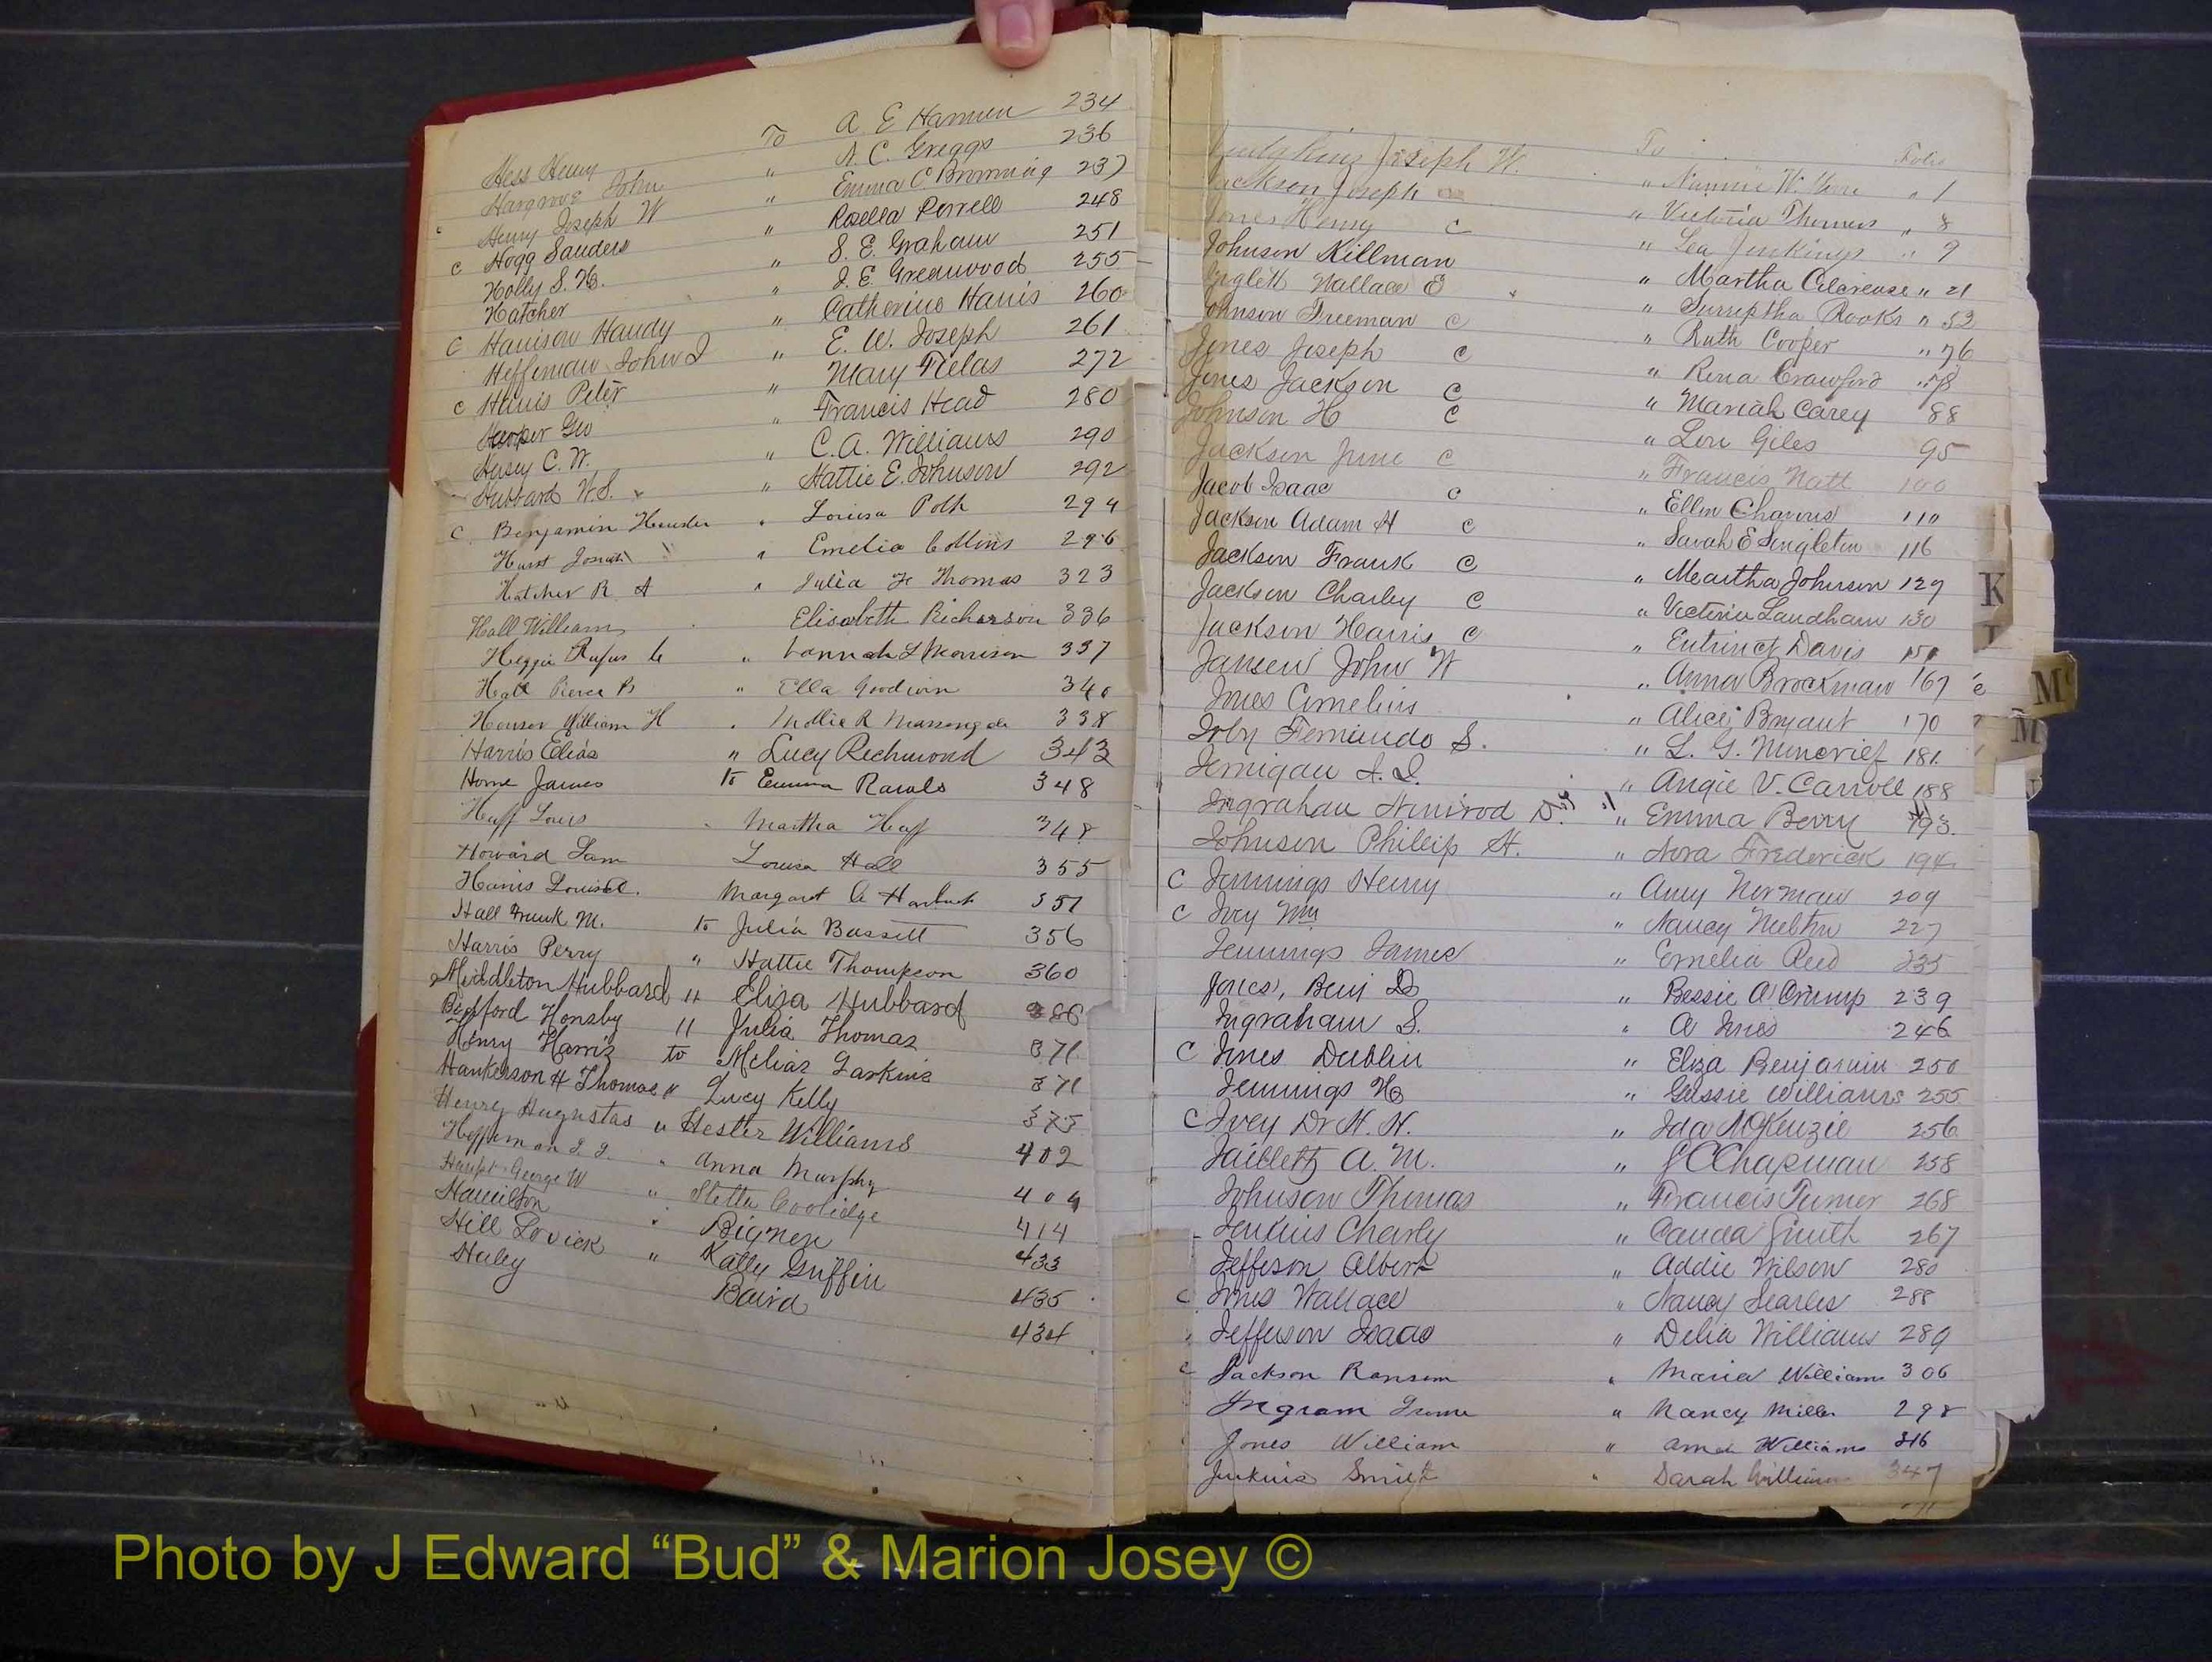 Hess Henry To A E Hammen 234
Hargrove John " A. C. Greggs 236
Henry Joseph W " Emma C. Browning 237
c Hogg Sanders " Rosella Perrell 248
Holly S. H. " S. E. Graham 251
Hatcher " J. E. Greenwood 255
c Harrison Handy " Catherine Harris 260
Heffernan John J " E. W. Joseph 261
c Harris Peter " Mary Fields 272
Harper Geo " Francis Head 280
Hersey C. W. " C. A. Williams 290
Hubbard W. S. " Hattie E. Johnson 292
C Benjamin Hunter " Louisa Polk 294
Hurst Josiah " Emelia Collins 296
Hatcher R A " Julia Thomas 323
Hall William Elizabeth Richerson 336
Heggie Rufus " Hannah L Morrison 337
Hall Pierce B " Ella Goodwin 340
Houser William H " Mollie R Massengale 338
Harris Elias " Lucy Richmond 343
Horne James to Emma Rawls 348
Huff Louis " Martha Huff 348
Howard Sam Louisa Hall 355
Harris Louis Margaret C 351
Hall Frank M. to Julia Bassett 356
Harris Perry " Hattie Thompson 360
Middleton Hubbard " Eliza Hubbard 366
Bifford Honsby " Julia Thomas 371
Henry Harris to Melias Larkins 371
Hankerson H Thomas " Lucy Kelly 375
Henry Augustas " Hester Williams 402
Heffernan J. J. " Anna Murphy 404
Haupt George W " Stella Coolidge 414
Hamilton " Bignen 433
Hill Lovick " Kally Griffin 435
Haley Baird 434
Joseph W. To Folio
Jackson Joseph " Nannie W. " 1
Jones Henry c " Victoria Thomas " 8
Johnson Killman " Lea Jenkings " 9
Inglett Wallace E " Martha Clarence " 21
Johnson Freeman c " Surreptha Rooks " 52
Jones Joseph c " Ruth Cooper " 76
Jones Jackson c " Rena Crawford " 78
Johnson H c " Mariah Carey 88
Jackson June c " Lou Giles 95
Jacob Isaac c " Francis Natt 100
Jackson Adam H c " Ellen Chavous 110
Jackson Frank c " Sarah E Singleton 116
Jackson Charley c " Martha Johnson 129
Jackson Harris c " Victoria Landham 130
Jansen John W " Davis 151
Jones Cornelius " Anna Brockman 167 c
Irby Fernando S. " Alice Bryant 170
Jernigan A. J. " L. G. Muncrief 181
Ingraham Nimrod D. " Angie V. Carroll 188
Johnson Phillip H. " Emma Berry 193
C Jennings Henry " Nora Frederick 194
c Ivey Wm " Amy Norman 209
Jennings James " Nancy Neelton 227
Jones, Benj D " Emelia Reed 235
Ingraham S. " Bessie A Crump 239
C Jones Dublin " A Jones 246
Jennings H " Eliza Benjamin 250
C Ivey Dr H. H. " Gussie Williams 255
Jaillett A. M. " Ida McKenzie 256
Johnson Thomas " J C Chapman 258
Jenkins Charly " Francis Turner 268
Jefferson Albert " Canda Smith 267
c Jones Wallace " Addie Wilson 280
Jefferson Isaac " Nancy Searles 288
c Jackson Ransom " Delia Williams 289
Ingram " Maria Williams 306
Jones William " Nancy Miller 298
Jenkins Smith " Williams 316
" Sarah Williams 347
K
L
M
M
Photo by J Edward “Bud” & Marion Josey ©